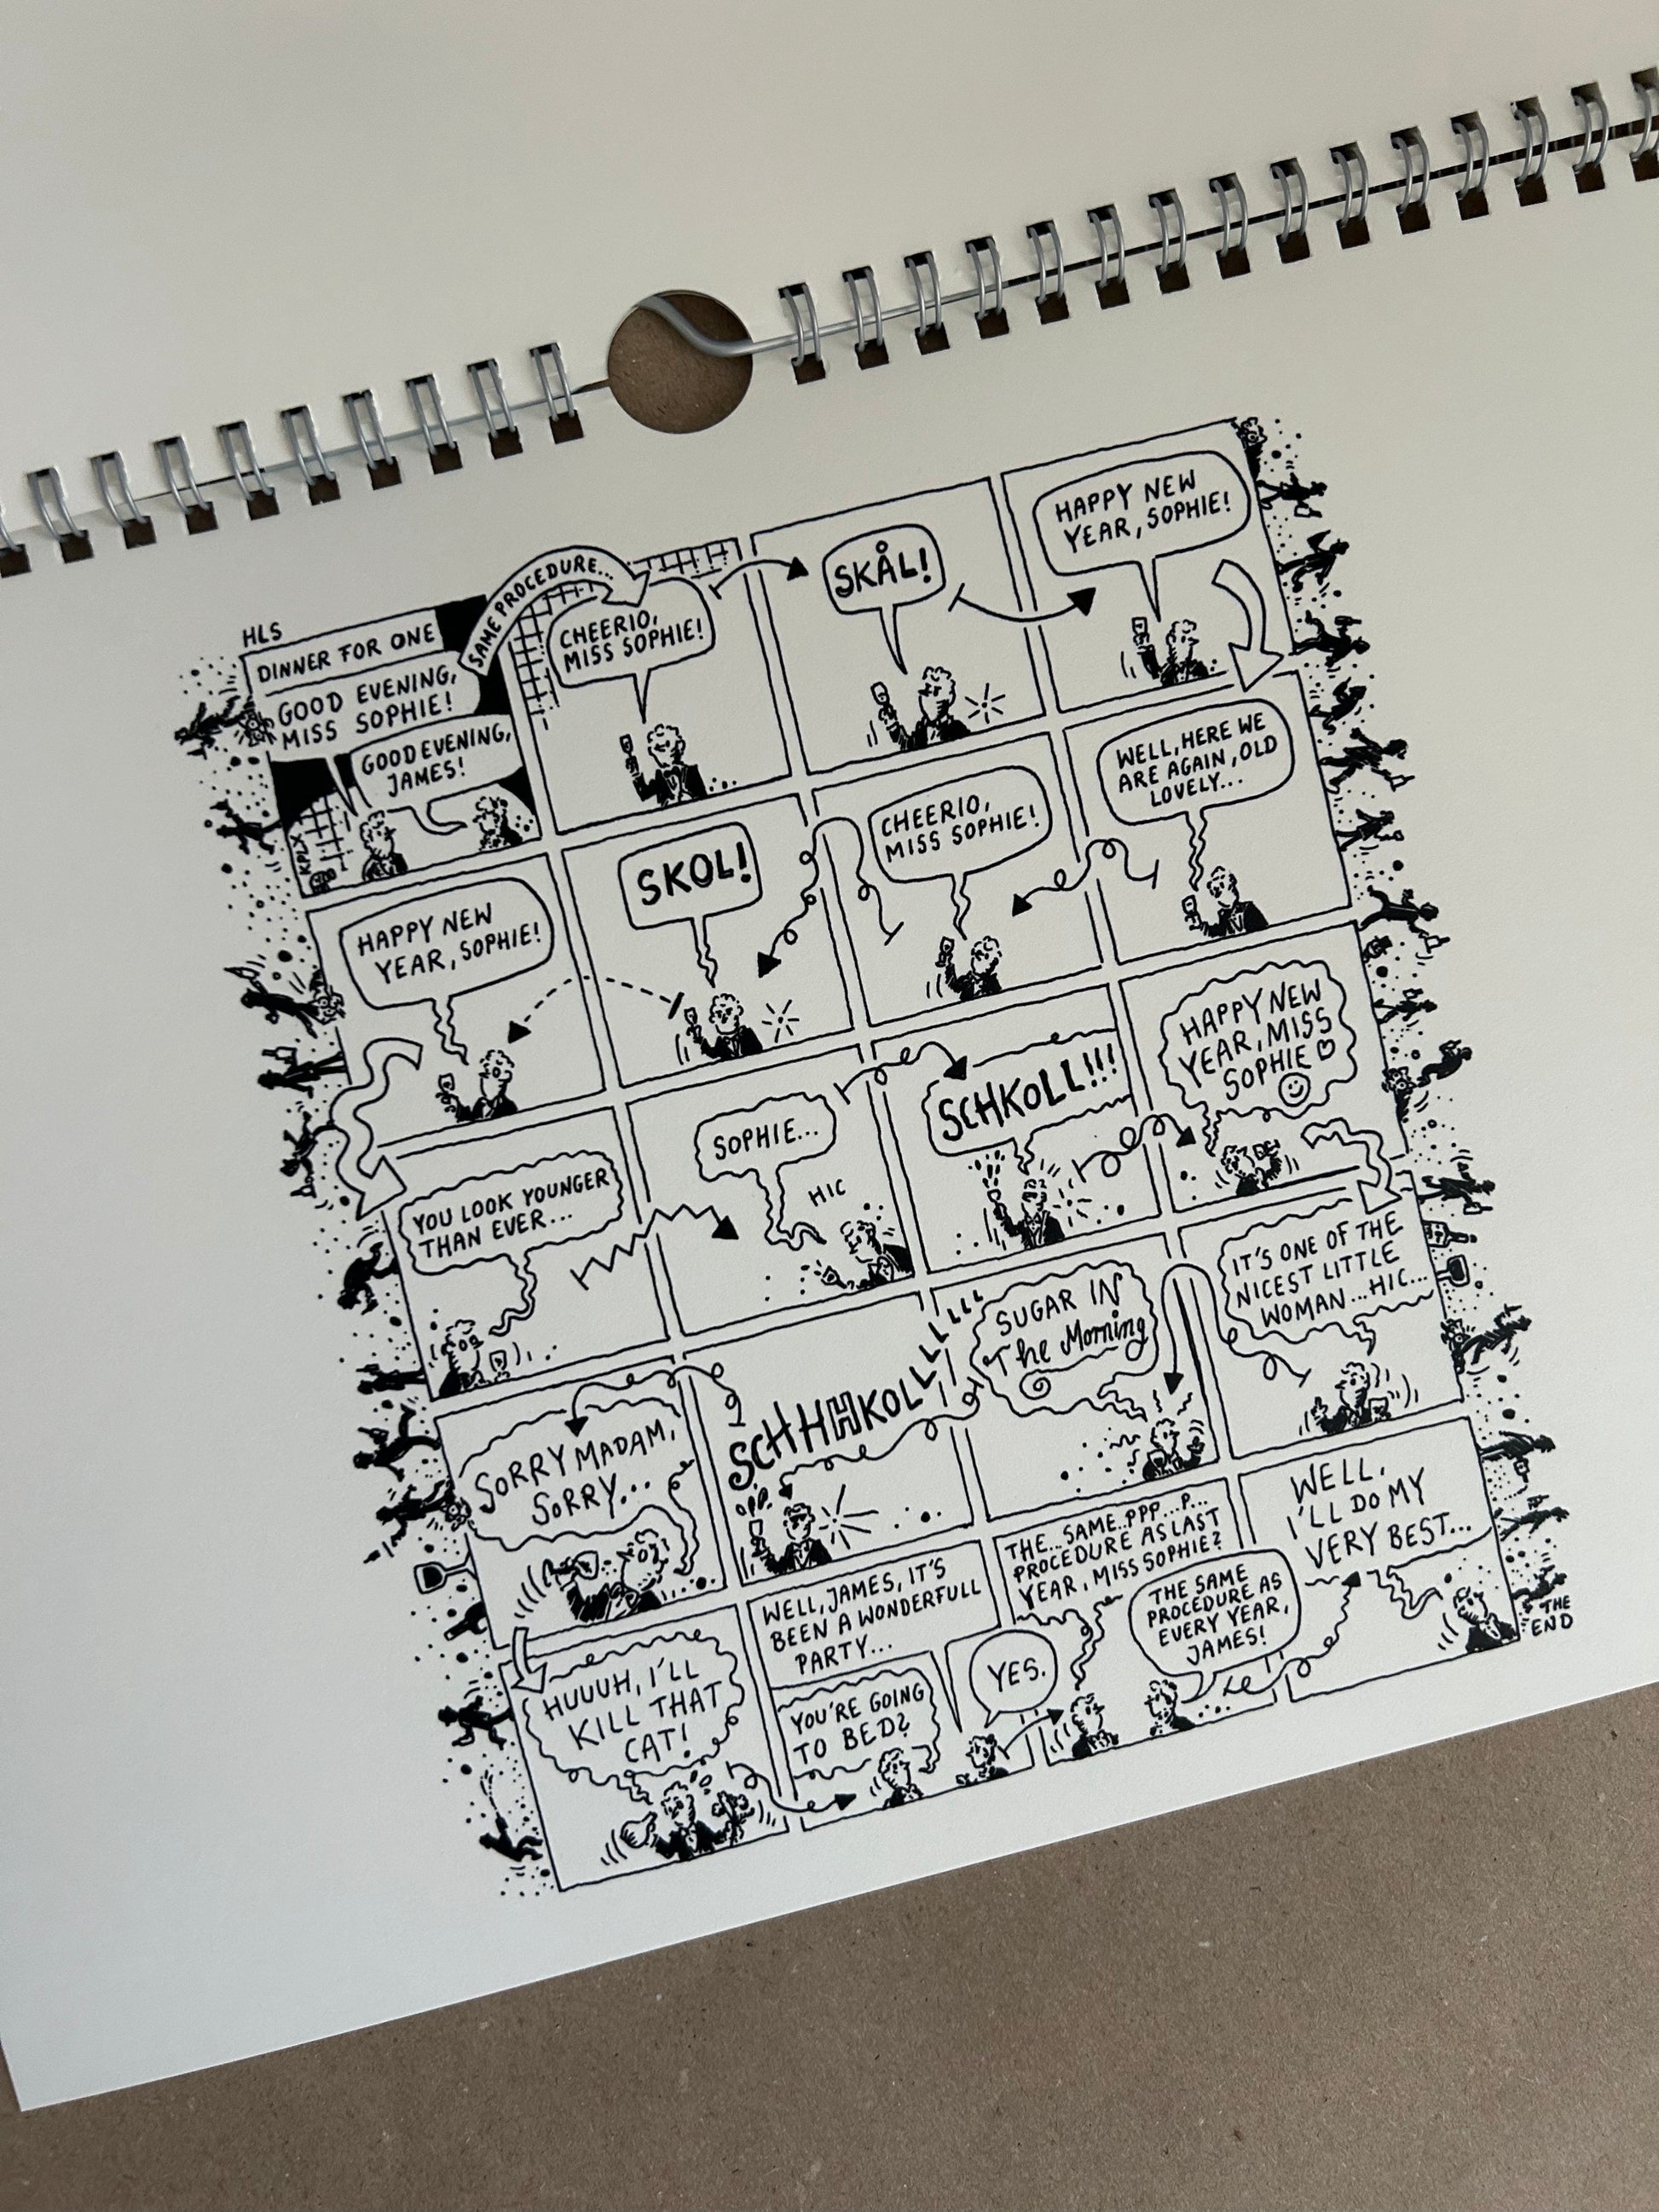 HLS
DINNER FOR ONE
GOOD EVENING,
MISS SOPHIE!
GOOD EVENING,
JAMES!
KPLX
SAME PROCEDURE...
CHEERIO,
MISS SOPHIE!
SKÅL!
HAPPY NEW
YEAR, SOPHIE!
WELL, HERE WE
ARE AGAIN, OLD
LOVELY...
CHEERIO,
MISS SOPHIE!
SKOL!
HAPPY NEW
YEAR, SOPHIE!
YOU LOOK YOUNGER
THAN EVER...
SOPHIE...
HIC
SCHKOLL!!!
HAPPY NEW
YEAR, MISS
SOPHIE
IT'S ONE OF THE
NICEST LITTLE
WOMAN...HIC...
SUGAR IN
The Morning
SCHHHKOLLLLLLLLL
SORRY MADAM,
SORRY...
HUUUH, I'LL
KILL THAT
CAT!
WELL, JAMES, IT'S
BEEN A WONDERFULL
PARTY...
YOU'RE GOING
TO BED?
YES.
THE...SAME..PPP...P...
PROCEDURE AS LAST
YEAR, MISS SOPHIE?
THE SAME
PROCEDURE AS
EVERY YEAR,
JAMES!
WELL,
I'LL DO MY
VERY BEST...
THE
END